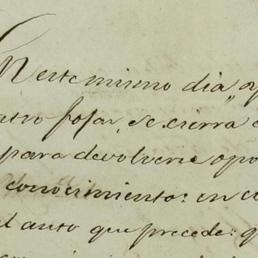 n este mismo dia,
tro fojas, se cierra
para devolverse
conocimiento: en c
l auto que precede: q